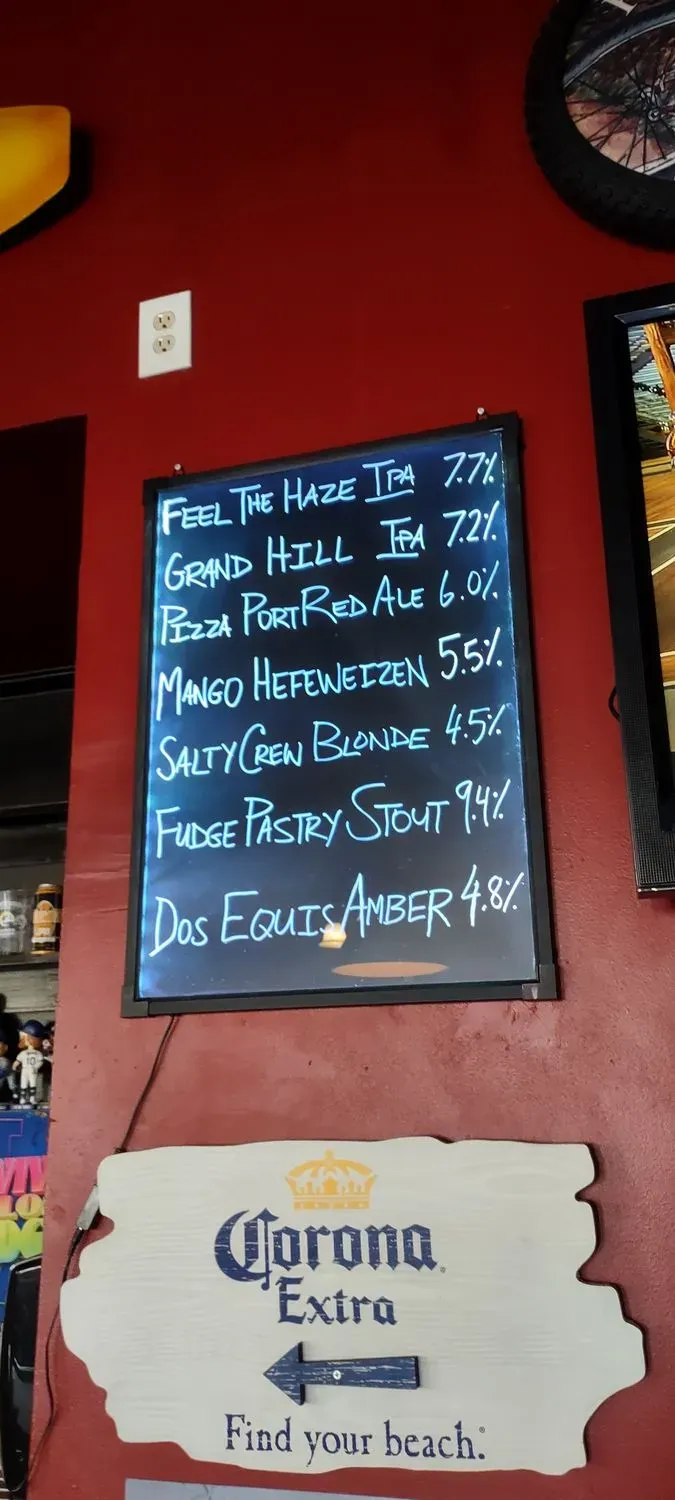 FEEL THE HAZE IPA 7.7%
GRAND HILL IPA 7.2%
PIZZA PORT RED ALE 6.0%
MANGO HEFEWEIZEN 5.5%
SALTY CREW BLONDE 4.5%
FUDGE PASTRY STOUT 9.4%
DOS EQUIS AMBER 4.8%
10
Corona
Extra
Find your beach.